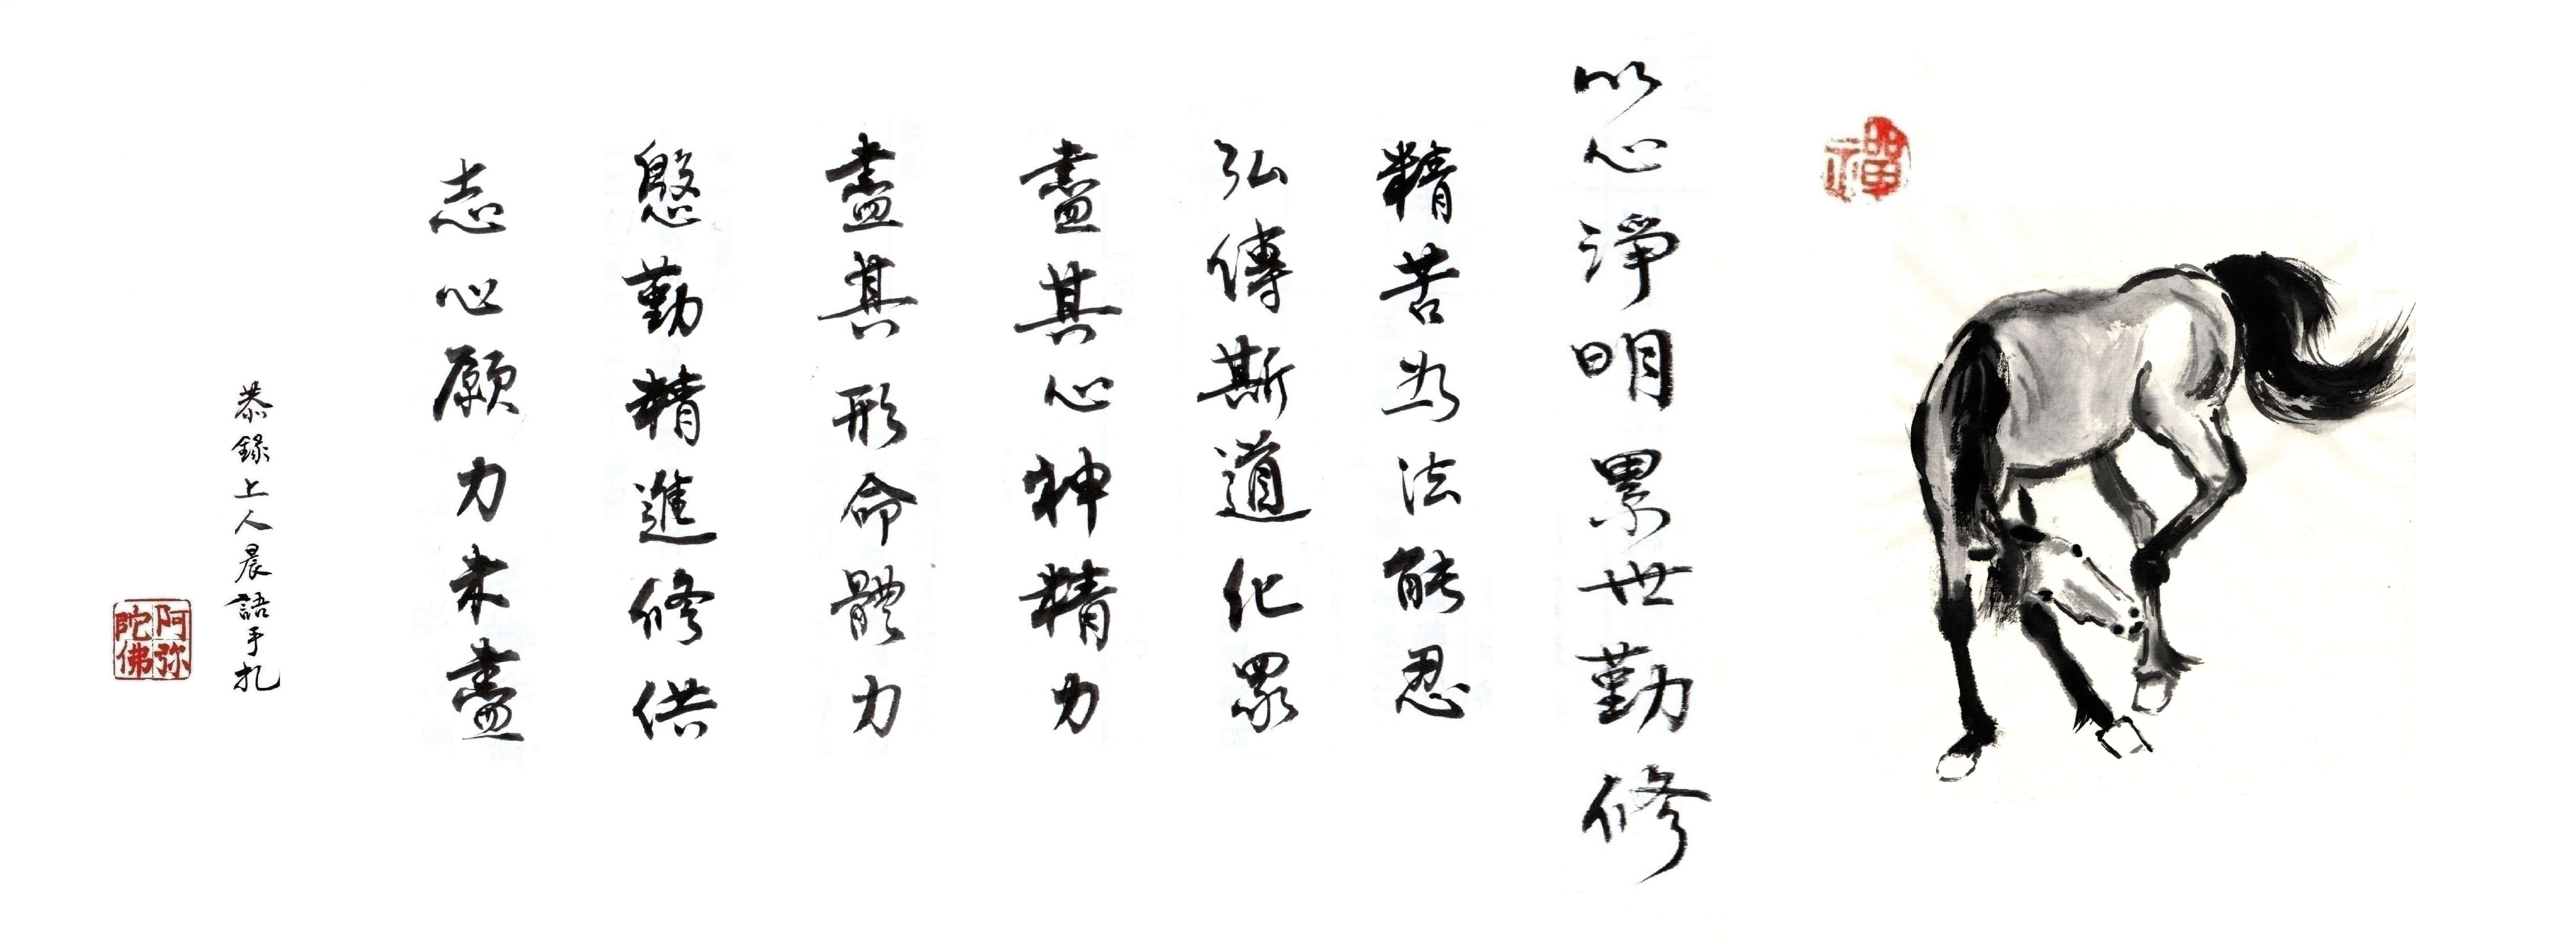 禪
以心淨明累世勤修
精苦為法能忍
弘傳斯道化眾
盡其心神精力
盡其形命體力
慇勤精進修供
志心願力未盡
恭錄上人晨語手扎
阿弥
陀佛